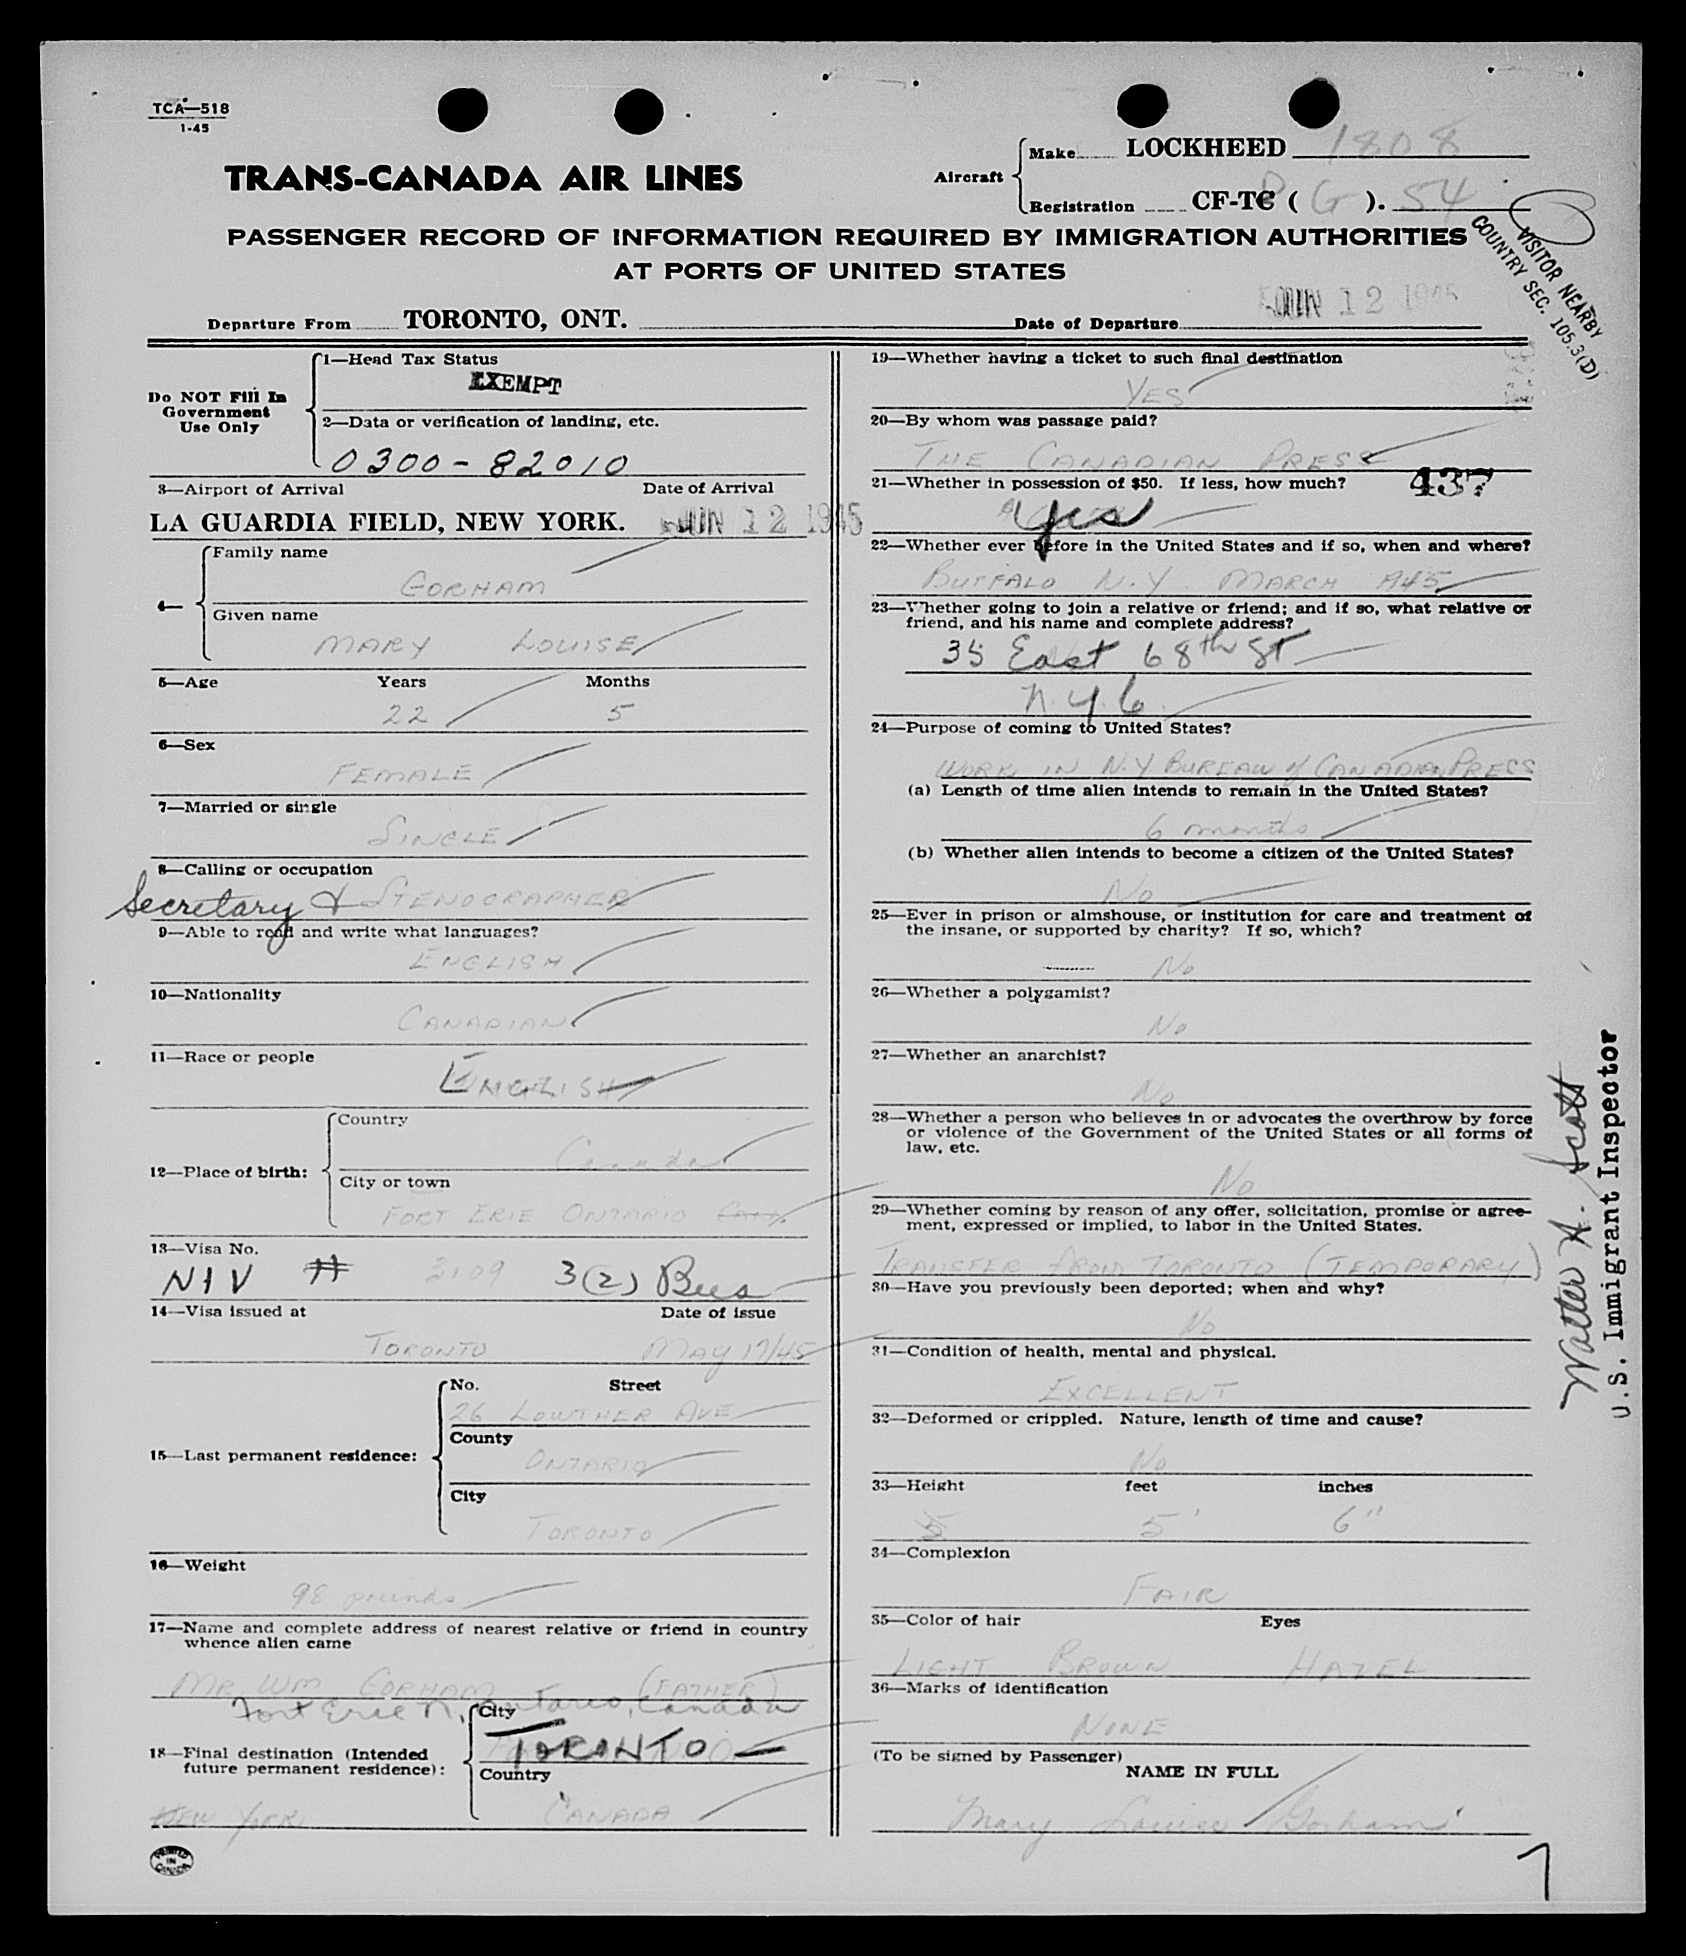 TCA—518
1-45
TRANS-CANADA AIR LINES
Aircraft
Make LOCKHEED 1808
Registration CF-TC ( G ). 54
PASSENGER RECORD OF INFORMATION REQUIRED BY IMMIGRATION AUTHORITIES
AT PORTS OF UNITED STATES
VISITOR NEARBY
COUNTRY SEC. 105.3(D)
Departure From TORONTO, ONT. Date of Departure JUN 12 1945
Do NOT Fill In
Government
Use Only
1—Head Tax Status
EXEMPT
2—Data or verification of landing, etc.
0300-82010
3—Airport of Arrival Date of Arrival
LA GUARDIA FIELD, NEW YORK. JUN 12 1945
4—
Family name
GORHAM
Given name
MARY LOUISE
5—Age Years Months
22 5
6—Sex
FEMALE
7—Married or single
SINGLE
8—Calling or occupation
Secretary & STENOGRAPHER
9—Able to read and write what languages?
ENGLISH
10—Nationality
CANADIAN
11—Race or people
ENGLISH
12—Place of birth:
Country
Canada
City or town
FORT ERIE ONTARIO CAN.
13—Visa No.
NIV # 3109 3(2) Bus
14—Visa issued at Date of issue
TORONTO MAY 17/45
15—Last permanent residence:
No. Street
26 LOWTHER AVE
County
ONTARIO
City
TORONTO
16—Weight
98 pounds
17—Name and complete address of nearest relative or friend in country
whence alien came
MR WM GORHAM (FATHER)
Fort Erie N, Ontario, Canada
18—Final destination (Intended
future permanent residence):
City
TORONTO
Country
NEW YORK CANADA
PRINTED
IN
CANADA
19—Whether having a ticket to such final destination
YES
20—By whom was passage paid?
THE CANADIAN PRESS
21—Whether in possession of $50. If less, how much? 437
Yes
22—Whether ever before in the United States and if so, when and where?
BUFFALO N.Y MARCH 1945
23—Whether going to join a relative or friend; and if so, what relative or
friend, and his name and complete address?
35 East 68th St
N.Y.C.
24—Purpose of coming to United States?
WORK IN N.Y BUREAU of CANADIAN PRESS
(a) Length of time alien intends to remain in the United States?
6 months
(b) Whether alien intends to become a citizen of the United States?
NO
25—Ever in prison or almshouse, or institution for care and treatment of
the insane, or supported by charity? If so, which?
No
26—Whether a polygamist?
No
27—Whether an anarchist?
No
28—Whether a person who believes in or advocates the overthrow by force
or violence of the Government of the United States or all forms of
law, etc.
No
29—Whether coming by reason of any offer, solicitation, promise or agree-
ment, expressed or implied, to labor in the United States.
TRANSFER FROM TORONTO (TEMPORARY)
30—Have you previously been deported; when and why?
No
31—Condition of health, mental and physical.
EXCELLENT
32—Deformed or crippled. Nature, length of time and cause?
No
33—Height feet inches
5 5' 6"
34—Complexion
FAIR
35—Color of hair Eyes
LIGHT BROWN HAZEL
36—Marks of identification
NONE
(To be signed by Passenger)
NAME IN FULL
Mary Louise Gorham
Walter H. Scott
U.S. Immigrant Inspector
7